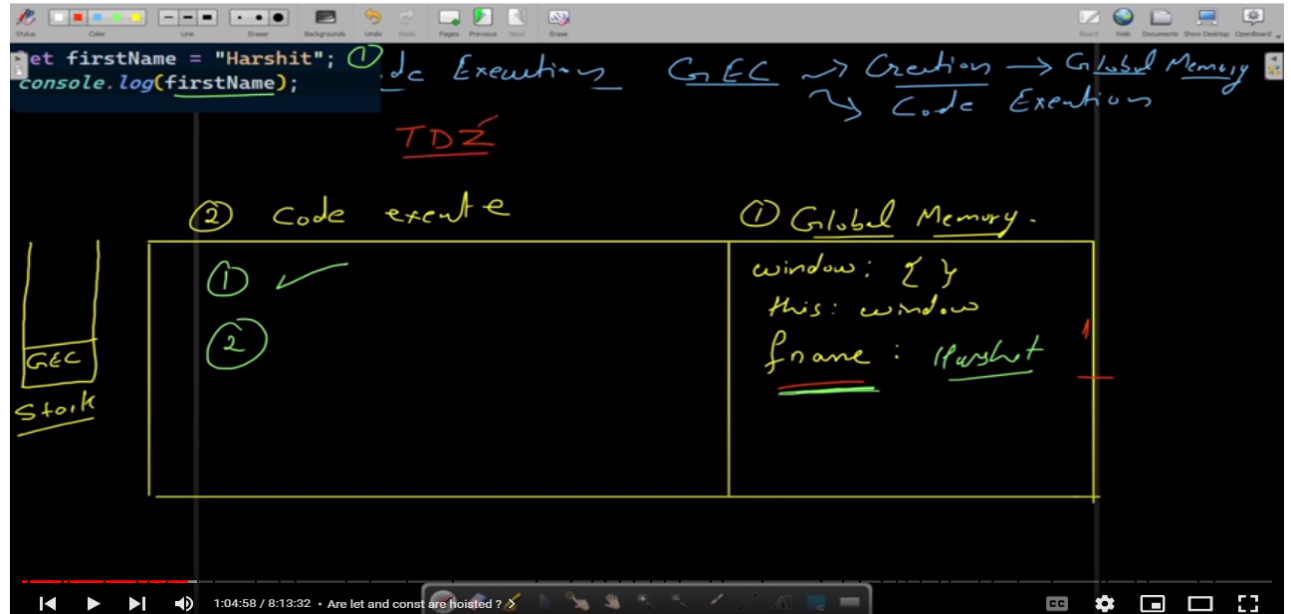 Stylus Color Line Eraser Backgrounds Undo Redo Pages Previous Next Erase Board Web Documents Show Desktop OpenBoard
let firstName = "Harshit"; ①
console.log(firstName);
de Execution GEC → Creation → Global Memory
Code Execution
TDZ
② Code exeute
① Global Memory.
① ✓
②
window: { }
this: window
fname : Harshit
GEC
Stack
1:04:58 / 8:13:32 • Are let and const are hoisted ? >
CC